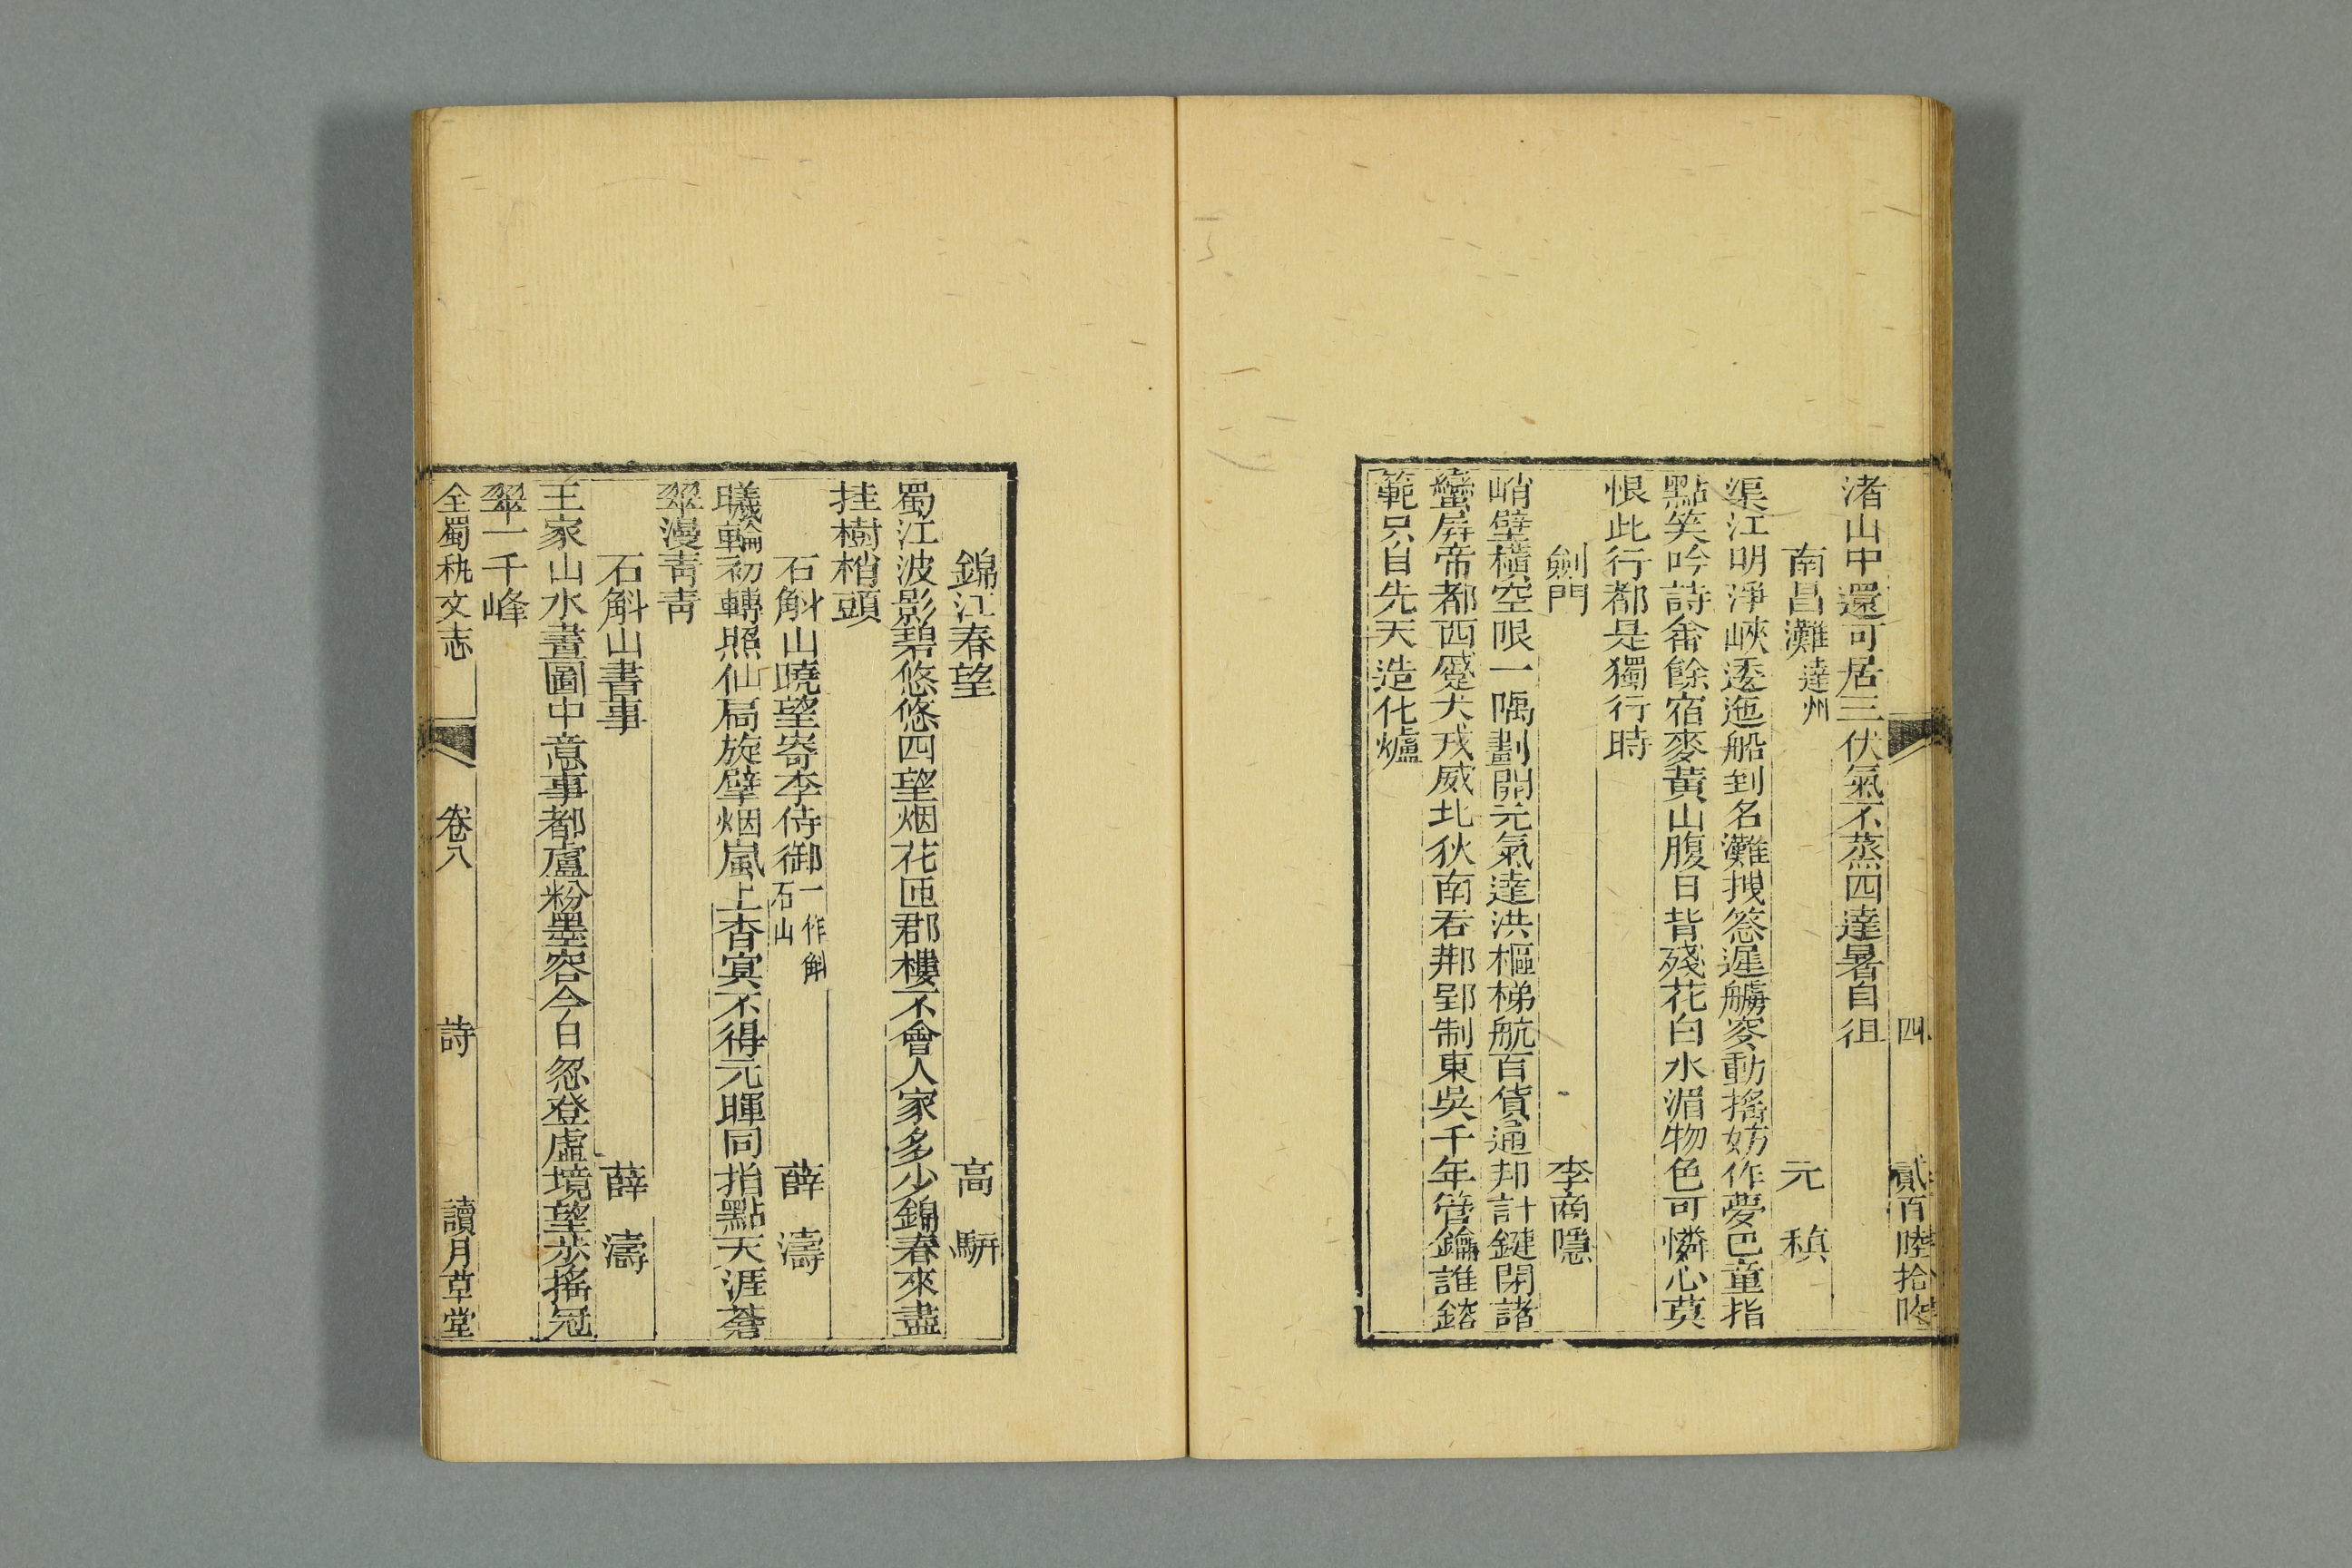 四 貳百陸拾陸
渚山中還可居三伏氣不蒸四達暑自徂
南昌灘達州 元稹
渠江明淨峽逶迤船到名灘拽䇲遲艣窡動搖妨作夢巴童指
點笑吟詩畬餘宿麥黃山腹日背殘花白水湄物色可憐心莫
恨此行都是獨行時
劍門 李商隱
峭壁橫空限一隅劃開元氣達洪樞梯航百貨通邦計鍵閉諸
蠻屏帝都西蹙犬戎威北狄南吞荆郢制東吳千年管鑰誰鎔
範只自先天造化爐
錦江春望 高駢
蜀江波影碧悠悠四望烟花匝郡樓不會人家多少錦春來盡
挂樹梢頭
石斛山曉望寄李侍御一作斛石山 薛濤
曦輪初轉照仙扃旋擘烟嵐上杳冥不得元暉同指點天涯蒼
翠漫青青
石斛山書事 薛濤
王家山水畫圖中意事都盧粉墨容今日忽登虛境望步搖冠
翠一千峰
全蜀秇文志 卷八 詩 讀月草堂